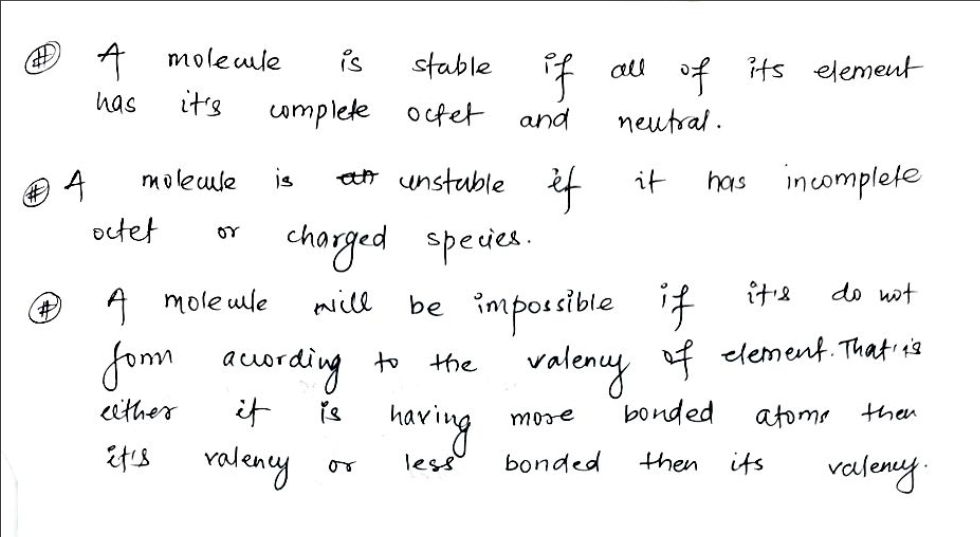 # A molecule is stable if all of its element
has it's complete octet and neutral.
# A molecule is an unstable if it has incomplete
octet or charged species.
# A molecule will be impossible if it's do not
form according to the valency of element. That is
either it is having more bonded atoms then
it's valency or less bonded then its valency.